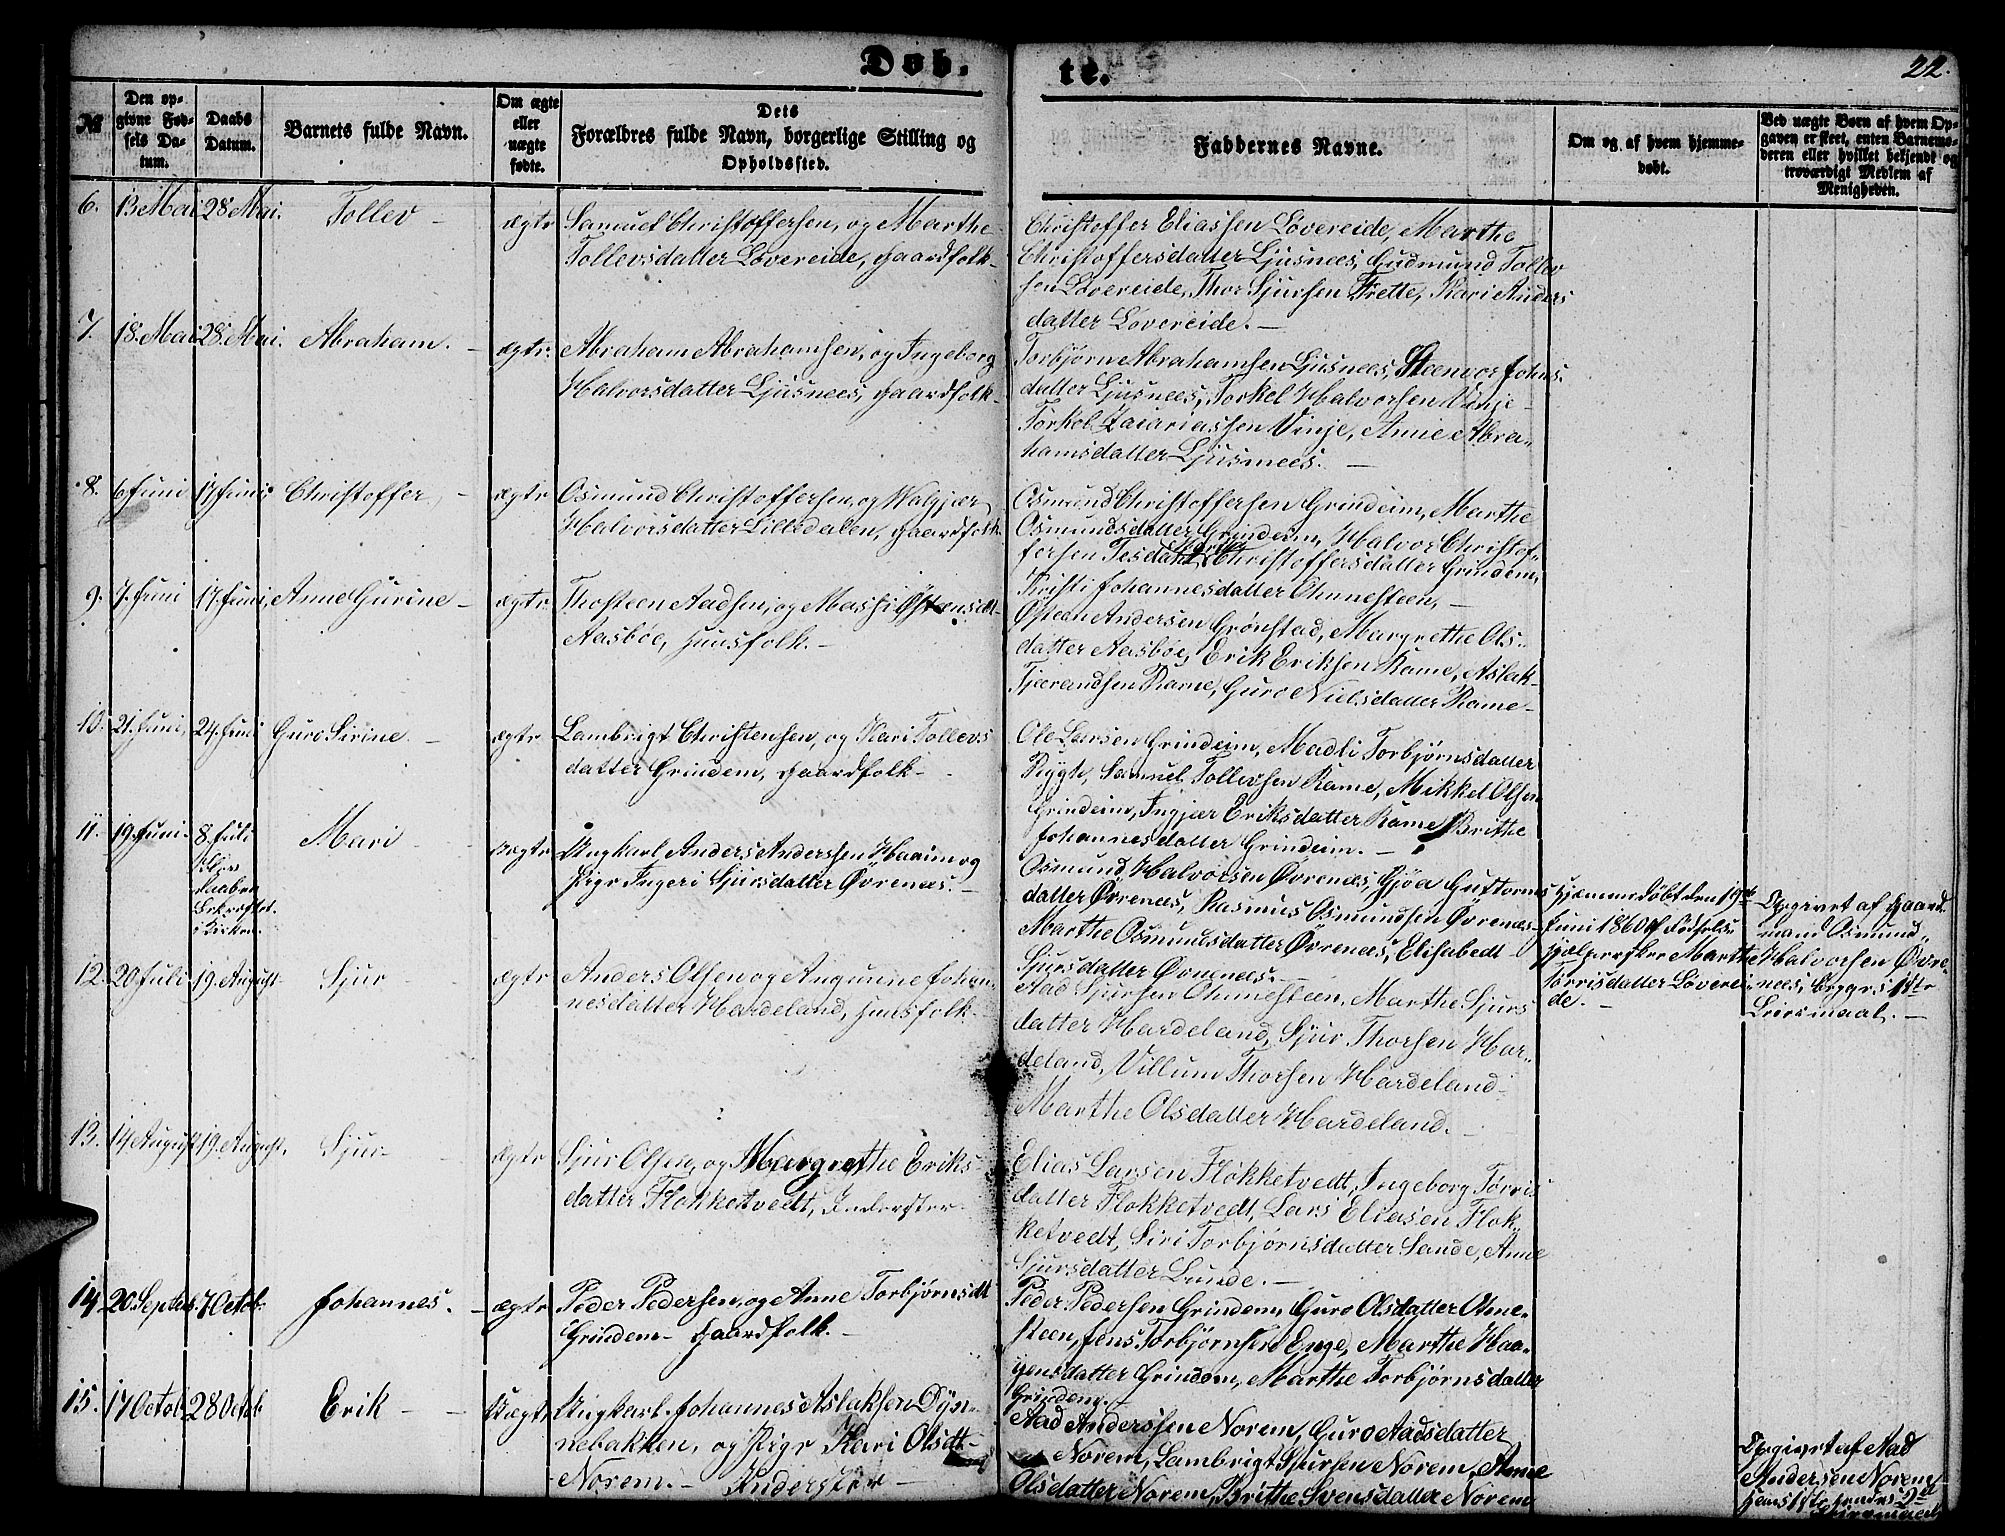 Døb. te. 22.
№
Den op-
givne Fød-
sels Da-
tum.
Daabs
Datum.
Barnets fulde Navn.
Om ægte
eller
uægte
fødte.
Dets
Forældres fulde Navn, borgerlige Stilling og
Opholdssted.
Faddernes Navne.
Om og af hvem hjemme-
døbt.
Ved uægte Børn af hvem Op-
gaven er skeet, enten Barnemo-
deren eller hvilket bekjendt og
troværdigt Medlem af
Menigheden.
6. 13 Mai 28 Mai. Tollev - ægte
Samuel Christoffersen, og Marthe
Tollevsdatter Løvereide, Gaardfolk-
Christoffer Eliassen Løvereide, Marthe
Christoffersdatter Ljusnees, Gudmund Tollev
sen Løvereide, Thor Sjursen Frette, Kari Anders
datter Løvereide. -
7. 18. Mai 28. Mai. Abraham. - ægte.
Abraham Abrahamsen, og Ingeborg
Halvorsdatter Ljusnees, Gaardfolk-
Torbjørn Abrahamsen Ljusnees, Steenvor Johns-
datter Ljusnees, Torkel Halvorsen Vinje-
Torkel Zacariassen Vinje, Anne Abra-
hamsdatter Ljusnees. -
8. 6 Juni 17 Juni Christoffer, - ægte
Osmund Christoffersen, og Valgjær
Halvorsdatter Lilledalen, Gaardfolk.
Osmund Christoffersen Grindeim, Marthe
Osmundsdatter Grindeim, Halvor Christof-
fersen Tesdal, Marthe Christoffersdatter Grindem,
Kristi Johannesdatter Ohmesteen, -
9. 7. Juni 17. Juni, Anne Gurine - ægte
Thosteen Aadsen, og Massi Østensdt-
Aasbøe, Huusfolk. -
Østeen Andersen Grønstad, Margrethe Ols-
datter Aasbøe, Erik Eriksen Rame, Aslak-
Tjerandsen Rame, Guro Nielsdatter Rame-
10. 21. Juni, 24. Juni Guro Sirine - ægte
Lambrigt Christensen, og Kari Tollevs
datter Grindem, Gaardfolk-
Ole Larsen Grindeim, Madli Torbjørnsdatter
Rygh, Samuel Tollevsen Rame, Mikkel Olsen
Grindeim, Ingjær Eriksdatter Rame, Brithe
Johannesdatter Grindeim. -
11. 19. Juni- 8 Juli
Daaben
Bekræftet
i Kirken.
Mari - uægte
Ungkarl Anders Anderssen Haaim og
Pige Ingeri Sjursdatter Øvrenæs. -
Osmund Halvorsen Øvrenæs, Gjøa Guttorms
datter Øvrenees, Rasmus Osmundsen Øvrenæs-
Marthe Osmundsdatter Øvrenæs, Elisabedt
Sjursdatter Øvrenæs. -
Hjemmedøbt den 19de
Juni 1860 af Fødsels-
hjælpersken Marthe
Tørrisdatter Løverei-
de. -
Opgivet af Gaard-
mand Osmund
Halvorsen Øvre-
nees, Begges 1ste
Leiermaal. -
12. 20 Juli 19. August- Sjur - ægte
Anders Olsen og Angunne Johan-
nesdatter Hardeland, Huusfolk-
Aad Sjursen Ohmesteen, Marthe Sjurs
datter Hardeland, Sjur Thorsen Har-
deland, Villum Thorsen Hardeland-
Marthe Olsdatter Hardeland. -
13. 14 August 19. August. Sjur - ægte
Sjur Olsen, og Margrethe Eriks-
datter Flokketvedt, Inderster-
Elias Larsen Flokketvedt, Ingeborg Tørris
datter Flokketvedt, Lars Eliasen Flok-
ketvedt, Siri Torbjørnsdatter Sande, Anne
Sjursdatter Lunde. -
14. 20 Septem. 7 Octob. Johannes. - ægte
Peder Pedersen, og Anne Torbjørnsdt
Grindem- Gaardfolk. -
Peder Pedersen Grindem, Guro Olsdatter Ohme-
steen, Jens Torbjørnsen Enge, Marthe Haa-
gensdatter Grindem, Marthe Torbjørnsdatter
Grindem. -
15. 17 Octob. 28 Octob Erik - - Uægte
Ungkarl. Johannes Aslaksen Dyn-
nebakken, og Pige Kari Olsdt-
Norem. - Inderster -
Aad Anderssen Norem, Guro Aadsdatter
Norem, Lambrigt Sjursen Norem, Anne
Olsdatter Norem, Brithe Svensdatter Norem
Opgivet af Aad
Andersen Norem
hans 1ste hendes 2det
Leiermaal